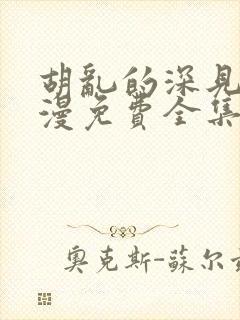 胡亂的深見
漫免費全集
奧克斯-蘇尔